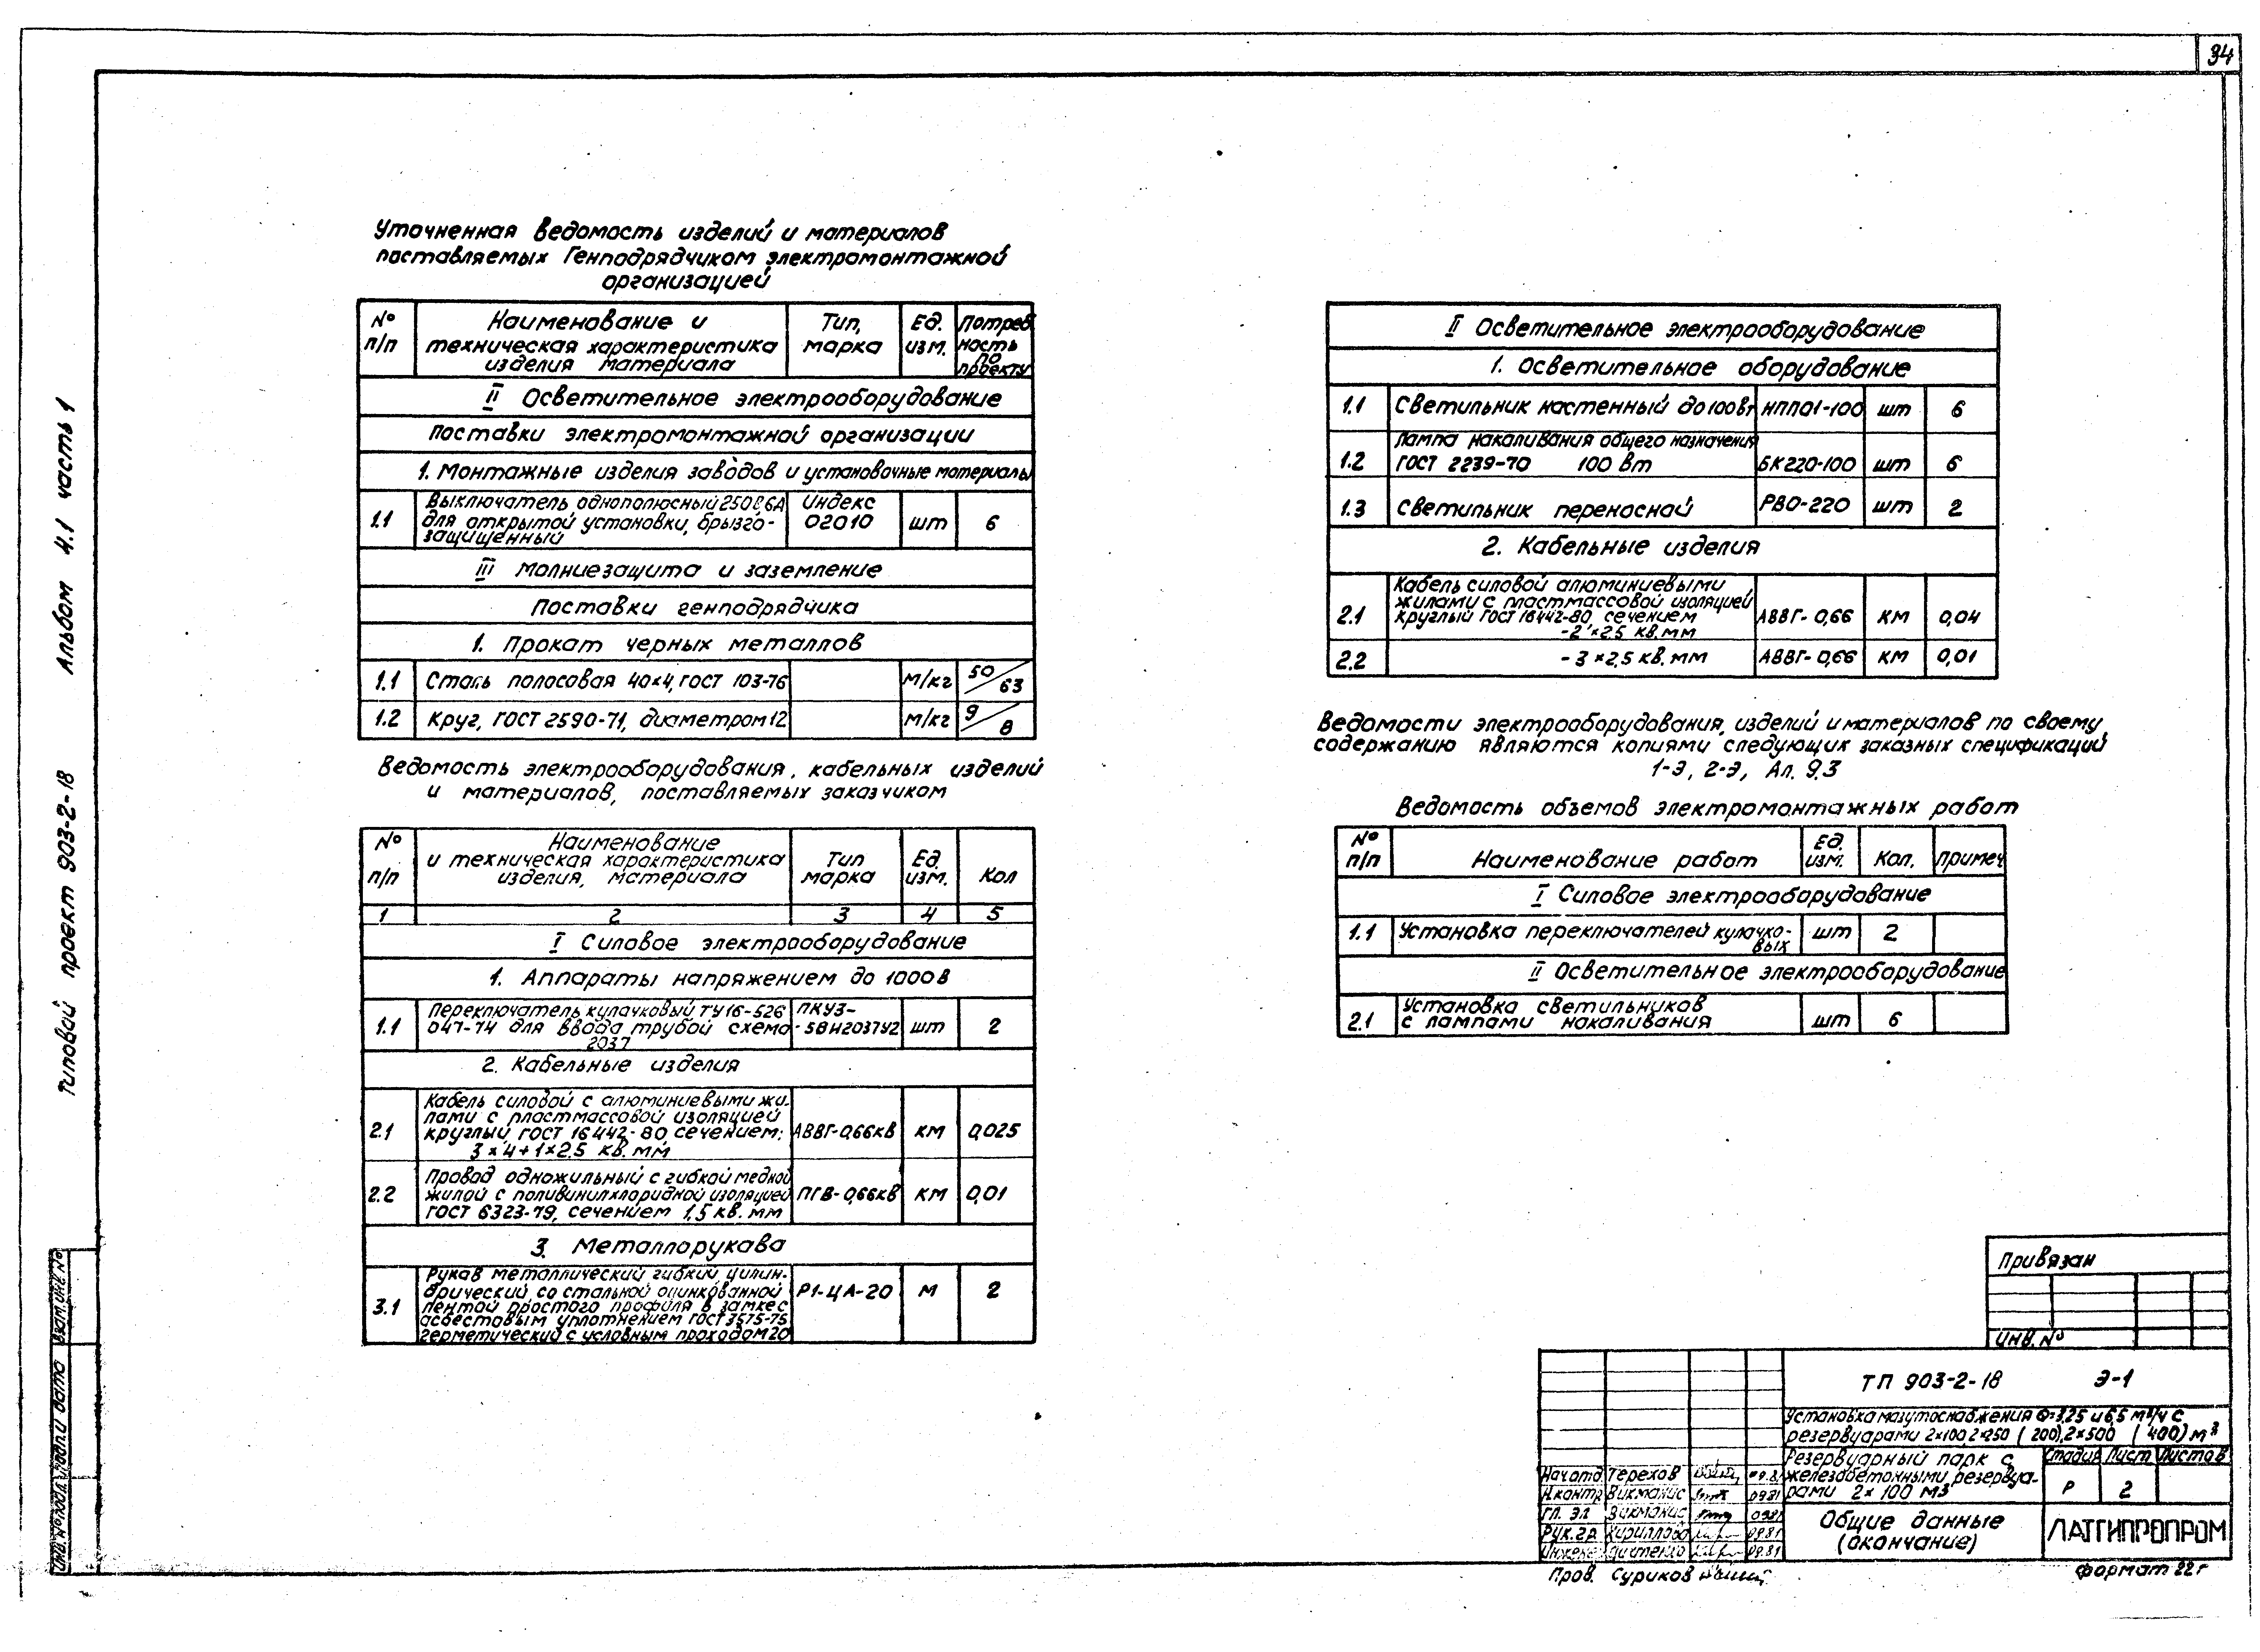 34
Типовой проект 903-2-18 Альбом 4.1 часть 1
Уточненная ведомость изделий и материалов
поставляемых Генподрядчиком электромонтажной
организацией
№ п/п | Наименование и техническая характеристика изделия материала | Тип, марка | Ед. изм. | Потреб ность по проекту
II Осветительное электрооборудование
Поставки электромонтажной организации
1. Монтажные изделия заводов и установочные материалы
1.1 | Выключатель однополюсный 250В 6А для открытой установки, брызго-защищенный | Индекс 02010 | шт | 6
III Молниезащита и заземление
Поставки генподрядчика
1. Прокат черных металлов
1.1 | Сталь полосовая 40×4, ГОСТ 103-76 | м/кг | 50/63
1.2 | Круг, ГОСТ 2590-71, диаметром 12 | м/кг | 9/8
Ведомость электрооборудования, кабельных изделий
и материалов, поставляемых заказчиком
№ п/п | Наименование и техническая характеристика изделия, материала | Тип марка | Ед. изм. | Кол
1 | 2 | 3 | 4 | 5
I Силовое электрооборудование
1. Аппараты напряжением до 1000 в
1.1 | Переключатель кулачковый ТУ16-526 047-74 для ввода трубой схема 2037 | ПКУ3-58И2037У2 | шт | 2
2. Кабельные изделия
2.1 | Кабель силовой с алюминиевыми жи-лами с пластмассовой изоляцией круглый ГОСТ 16442-80, сечением: 3×4+1×2.5 кв.мм | АВВГ-0,66кв | км | 0,025
2.2 | Провод одножильный с гибкой медной жилой с поливинилхлоридной изоляцией ГОСТ 6323-79, сечением 1,5 кв.мм | ПГВ-0,66кв | км | 0,01
3. Металлорукава
3.1 | Рукав металлический гибкий, цилин-дрический, со стальной оцинкованной лентой простого профиля в замке с асбестовым уплотнением ГОСТ 3575-75 герметический с условным проходом 20 | Р1-ЦА-20 | м | 2
II Осветительное электрооборудование
1. Осветительное оборудование
1.1 | Светильник настенный до 100Вт | НПП01-100 | шт | 6
1.2 | Лампа накаливания общего назначения ГОСТ 2239-70 100 Вт | БК220-100 | шт | 6
1.3 | Светильник переносной | РВО-220 | шт | 2
2. Кабельные изделия
2.1 | Кабель силовой алюминиевыми жилами с пластмассовой изоляцией круглый ГОСТ 16442-80, сечением -2×2.5 кв.мм | АВВГ-0,66 | км | 0,04
2.2 | -3×2,5 кв.мм | АВВГ-0,66 | км | 0,01
Ведомости электрооборудования, изделий и материалов по своему
содержанию являются копиями следующих заказных спецификаций
1-Э, 2-Э, Ал. 9.3
Ведомость объемов электромонтажных работ
№ п/п | Наименование работ | Ед. изм. | Кол. | Примеч
I Силовое электрооборудование
1.1 | Установка переключателей кулачко-вых | шт | 2
II Осветительное электрооборудование
2.1 | Установка светильников с лампами накаливания | шт | 6
Привязан
Инв. №
ТП 903-2-18 Э-1
Установка мазутоснабжения Q=3,25 и 6,5 м³/ч с
резервуарами 2×100, 2×250 (200), 2×500 (400) м³
Резервуарный парк с
железобетонными резервуа-
рами 2×100 м3
Стадия | Лист | Листов
Р | 2
Общие данные
(окончание)
ЛАТГИПРОПРОМ
Нач отд Терехов 09.81
Н.контр Викманис 09.81
Гл. эл Викманис 09.81
Рук. гр Кириллова 09.81
Инжене 09.81
Пров. Суриков
Формат 22г
Инв. № подл. Подп. и дата Взам. инв. №